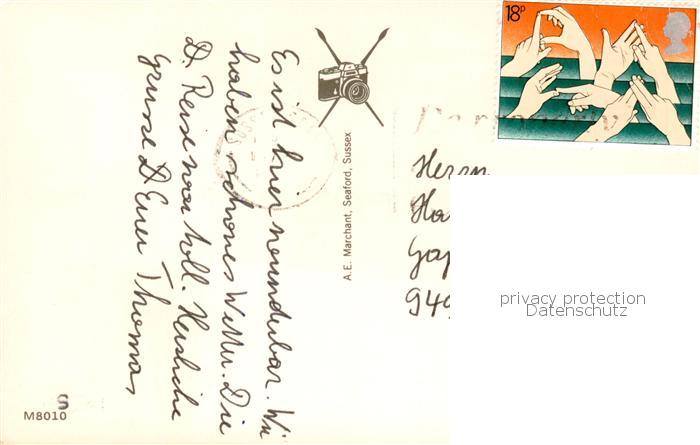 18P
Es ist hier wunderbar. Wir
haben schönes Wetter. Die
D. Reise war toll. Herzliche
Grüsse D Euer Thomas
A.E. Marchant, Seaford, Sussex
Herrn
949
privacy protection
Datenschutz
M8010
S